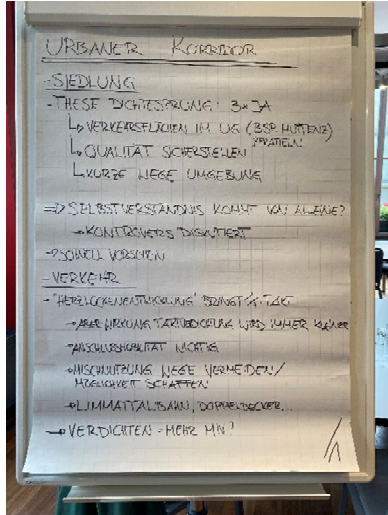 URBANER KORRIDOR
- SIEDLUNG
- THESE DICHTESERUNG: 3x JA
↳ VERKEHRSFLÄCHEN IM UG (BSP. MUTTENZ
PRATTELN)
↳ QUALITÄT SICHERSTELLEN
↳ KURZE WEGE UMGEBUNG
=> SELBSTVERSTÄNDNIS KOMMT VON ALLEINE?
→ KONTROVERS DISKUTIERT
- VERKEHR
BRINGT TAKT
→ ABER WIRKUNG TAKTVERDICHTUNG WIRD IMMER KLEINER
→ ANSCHLUSSMOBILITÄT WICHTIG
→ MISCHNUTZUNG WEGE VERMEIDEN/
MÖGLICHKEIT SCHAFFEN
→ LIMMATTALBAHN, DOPPELDECKER...
→ VERDICHTEN = MEHR MIV?